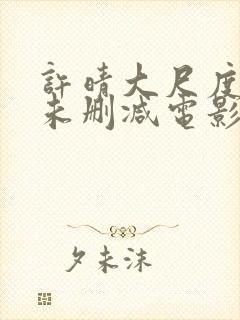 許晴大尺度
未删减電影
夕未沫